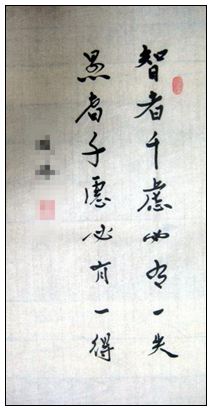 智者千虑必有一失
愚者千虑必有一得